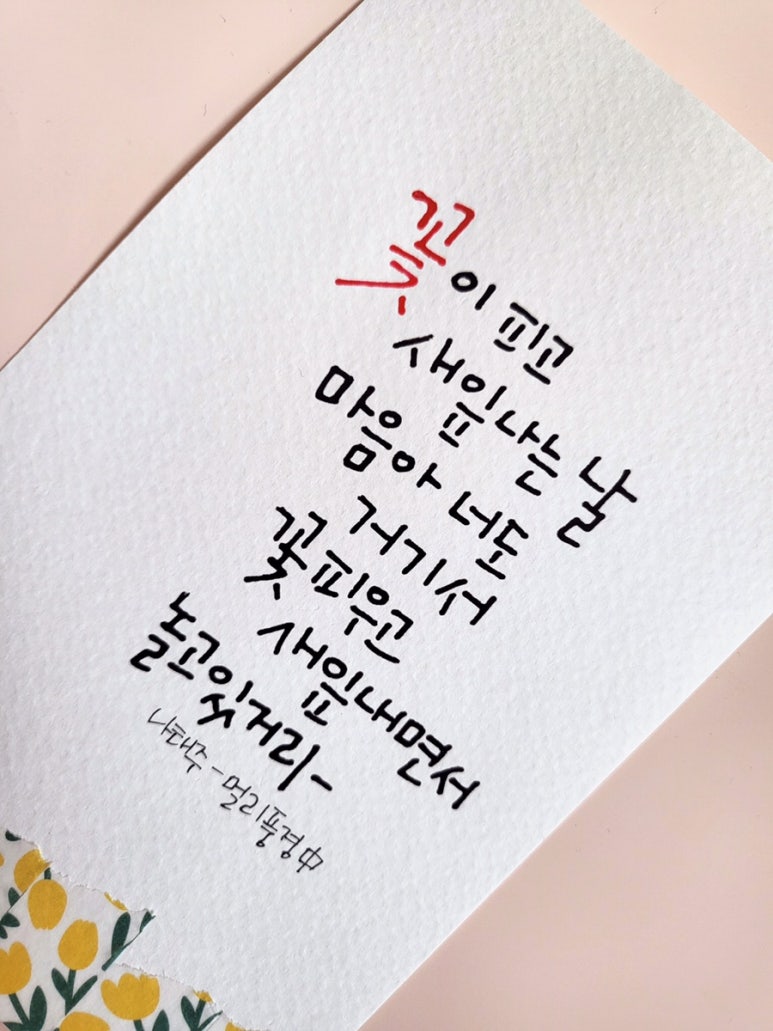 꽃이 피고
새잎 나는 날
마음아 너도
거기서
꽃 피우고
새잎 내면서
놀고 있거라-
나태주 - 멀리풍경 中